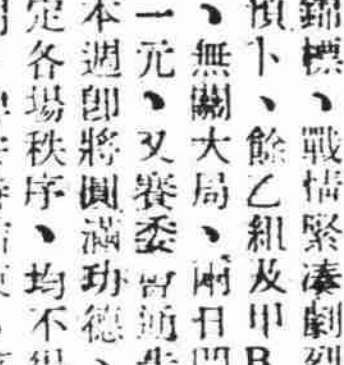 錦標、戰情緊凑劇烈
卜、餘乙組及甲B
、無關大局、兩日
一元、又賽委會通
本週卽將圓滿功德、
定各場秩序、均不得